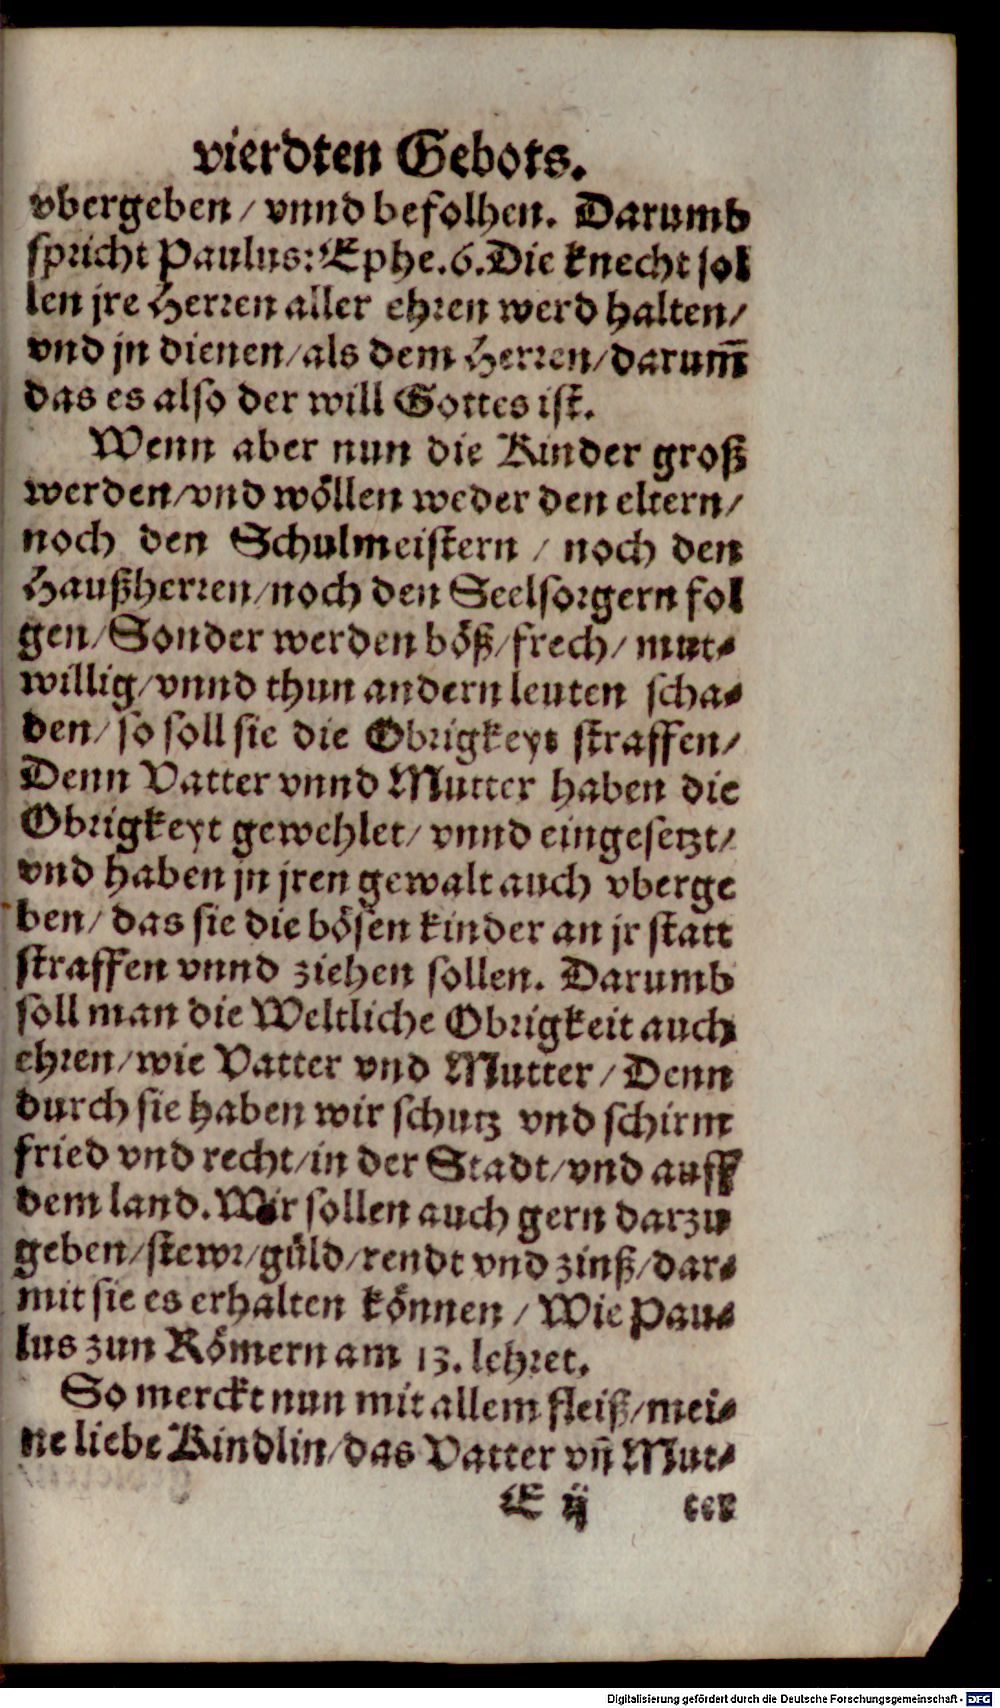 vierdten Gebots.
vbergeben / vnnd befolhen. Darumb
spricht Paulus: Ephe. 6. Die knecht sol
len jre Herren aller ehren werd halten /
vnd jn dienen / als dem Herren / darum̅
das es also der will Gottes ist.
Wenn aber nun die Kinder groß
werden / vnd wöllen weder den eltern /
noch den Schulmeistern / noch den
Haußherren / noch den Seelsorgern fol
gen / Sonder werden böß / frech / mut-
willig / vnnd thun andern leuten scha-
den / so soll sie die Obrigkeyt straffen /
Denn Vatter vnnd Mutter haben die
Obrigkeyt gewehlet / vnnd eingesetzt /
vnd haben jn jren gewalt auch vberge
ben / das sie die bösen kinder an jr statt
straffen vnnd ziehen sollen. Darumb
soll man die Weltliche Obrigkeit auch
ehren / wie Vatter vnd Mutter / Denn
durch sie haben wir schutz vnd schirm
fried vnd recht / in der Stadt / vnd auff
dem land. Wir sollen auch gern darzu
geben / stewr / gült / rendt vnd zinß / dar-
mit sie es erhalten können / Wie Pau-
lus zun Römern am 13. lehret.
So merckt nun mit allem fleiß / mei-
ne liebe Kindlin / das Vatter vn̅ Mut-
E ij ter
Digitalisierung gefördert durch die Deutsche Forschungsgemeinschaft - DFG